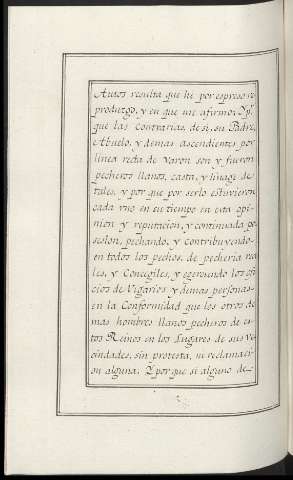 Autos resulta que hé por espresso re
produzgo, y en que me afirmo: Y pr.
que las Contrarias, de si, su Padre,
Abuelo, y demas ascendientes, por
linea recta de Varon son y fueron
pecheros llanos, casta, y linage de
tales, y por que por serlo estuvieron
cada vno en su tiempo en esta opi-
nion y reputacion, y continuada po
sesion, pechando, y contribuyendo-
en todos los pechos, de pecheria rea
les, y Concegiles, y egerciendo los ofi
cios de Vigarios y demas personas-
en la Conformidad que los otros de
mas hombres llanos pecheros de es-
tos Reinos en los Lugares de sus Ve
cindades, sin protesta, ni reclamaci-
on alguna. Y por que si alguno de-